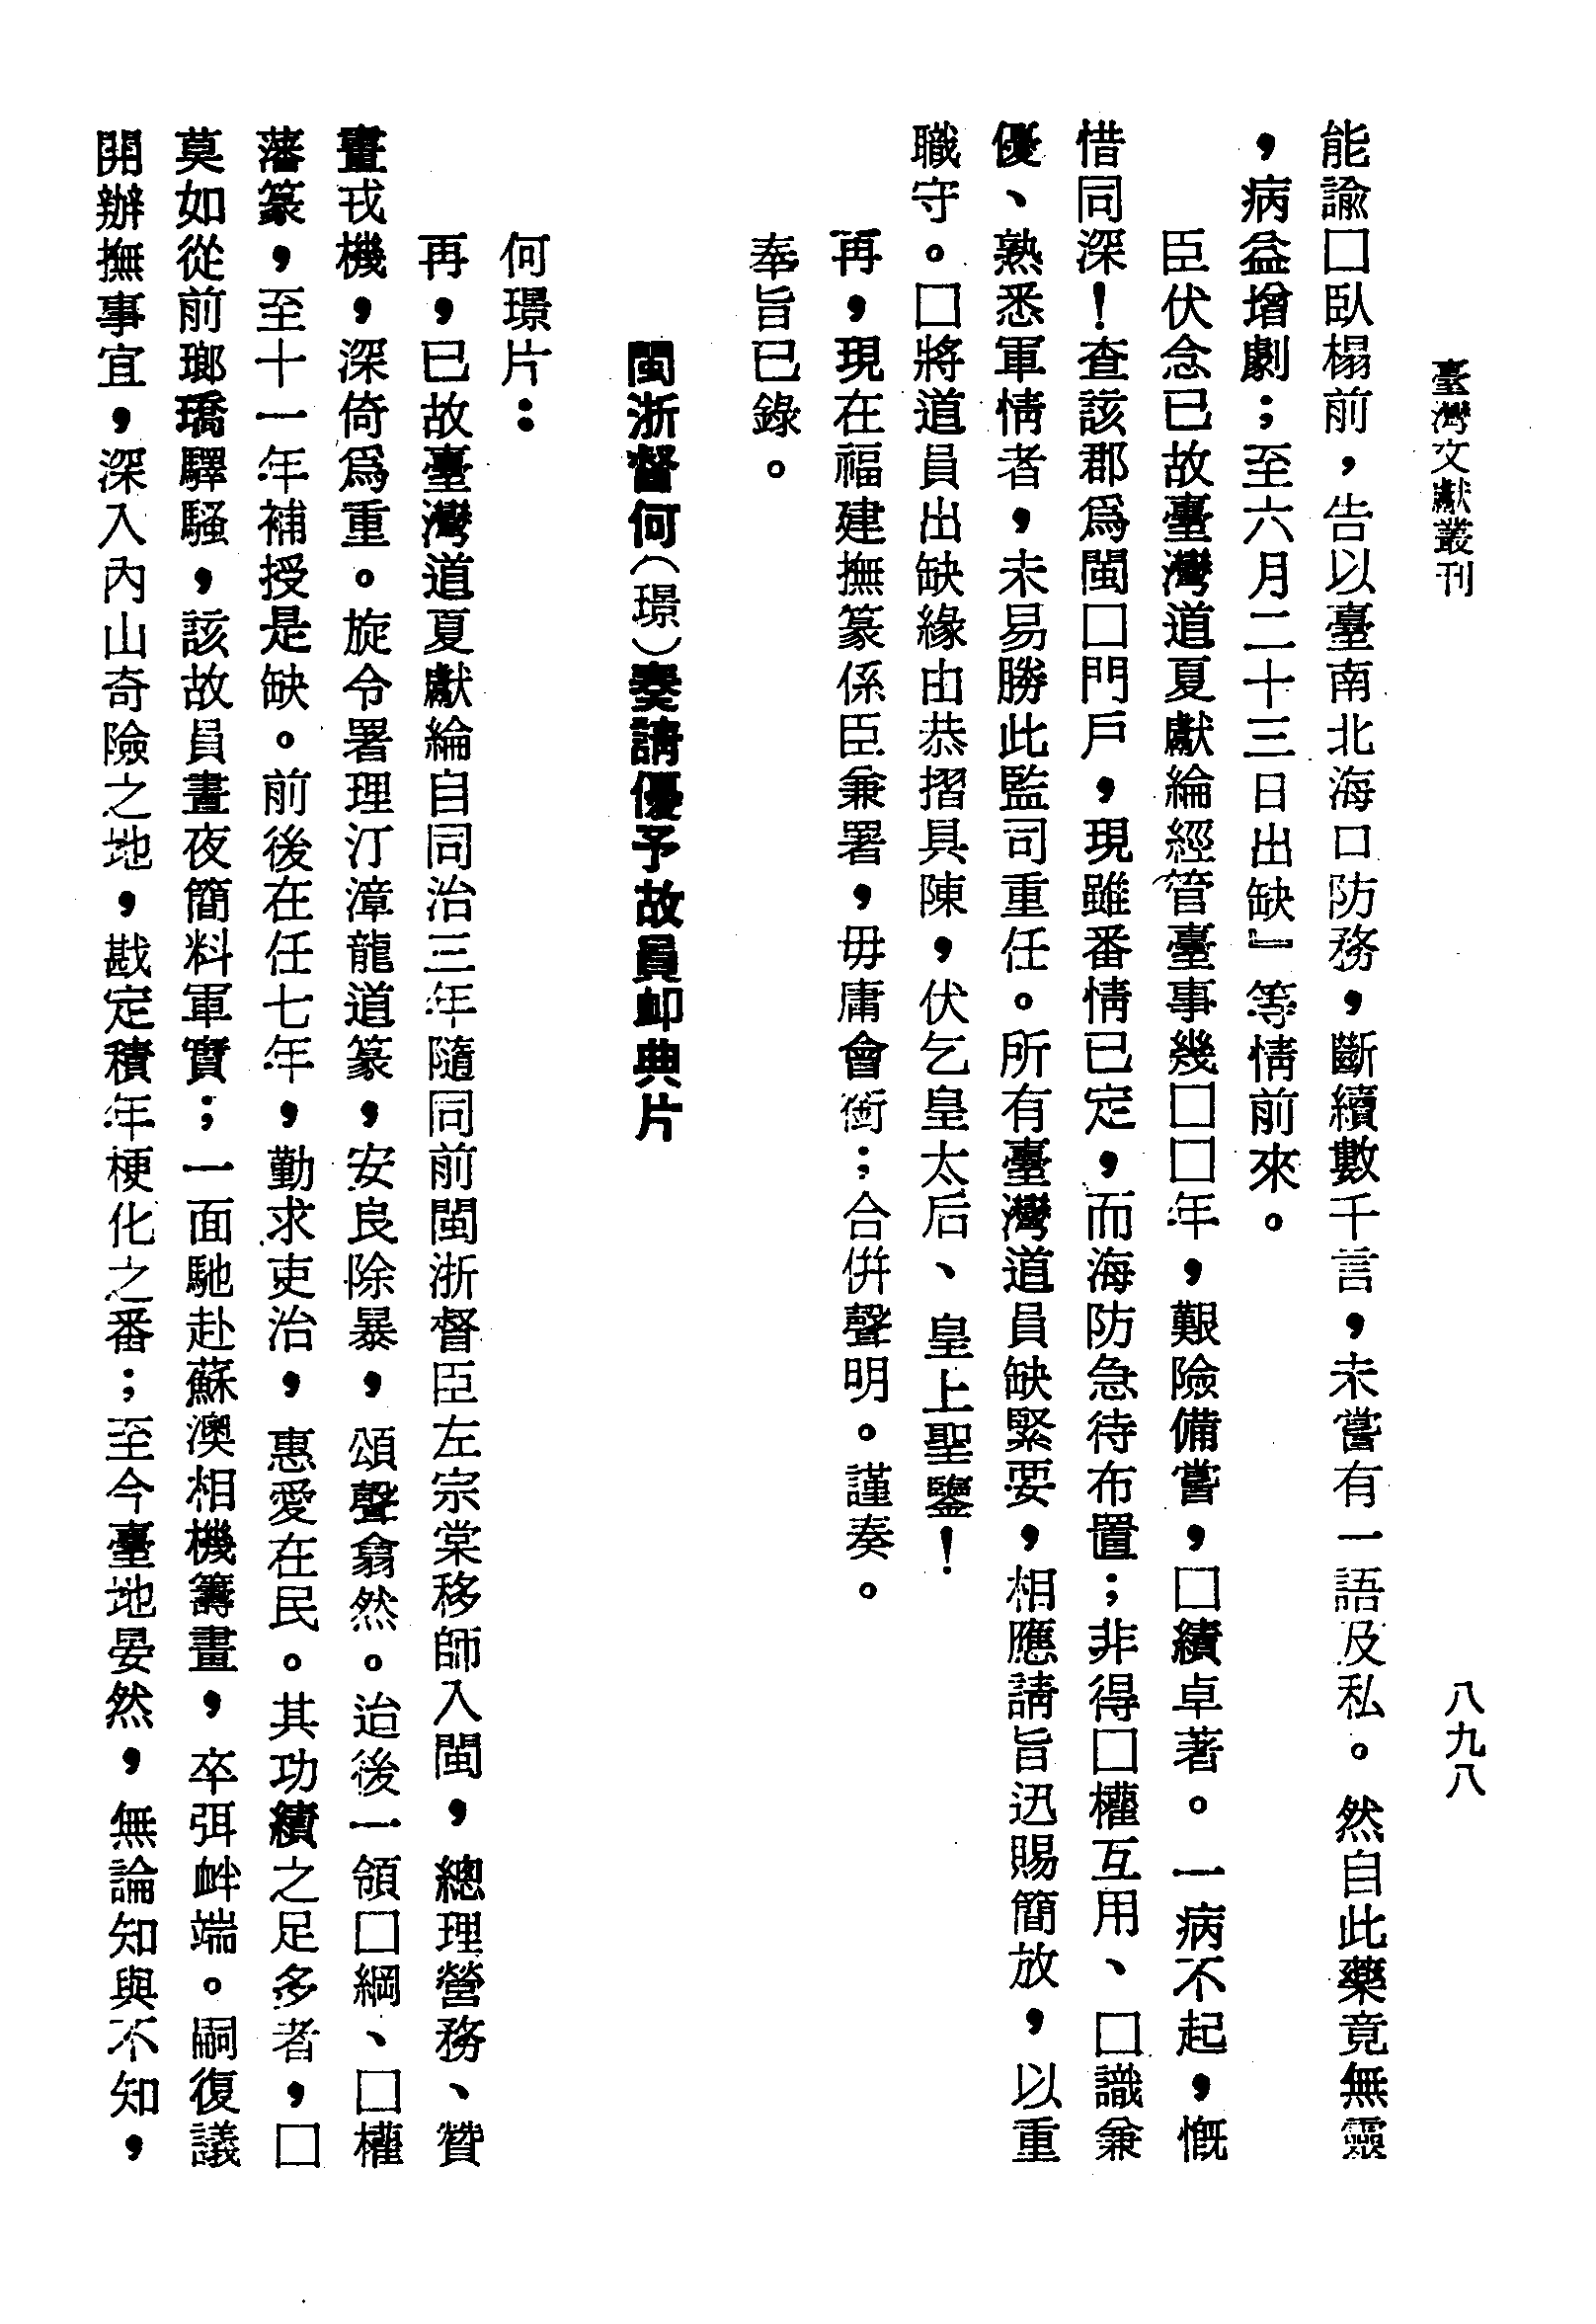 臺灣文獻叢刊
八九八
能諭□臥榻前，告以臺南北海口防務，斷續數千言，未嘗有一語及私。然自此藥竟無靈
，病益增劇；至六月二十三日出缺』等情前來。
臣伏念已故臺灣道夏獻綸經管臺事幾□□年，艱險備嘗，□績卓著。一病不起，慨
惜同深！查該郡爲閩□門戶，現雖番情已定，而海防急待布置；非得□權互用、□識兼
優、熟悉軍情者，未易勝此監司重任。所有臺灣道員缺緊要，相應請旨迅賜簡放，以重
職守。□將道員出缺緣由恭摺具陳，伏乞皇太后、皇上聖鑒！
再，現在福建撫篆係臣兼署，毋庸會銜；合併聲明。謹奏。
奉旨已錄。
閩浙督何（璟）奏請優予故員卹典片
何璟片：
再，已故臺灣道夏獻綸自同治三年隨同前閩浙督臣左宗棠移師入閩，總理營務、贊
畫戎機，深倚爲重。旋令署理汀漳龍道篆，安良除暴，頌聲翕然。迨後一領□綱、□權
藩篆，至十一年補授是缺。前後在任七年，勤求吏治，惠愛在民。其功績之足多者，□
莫如從前瑯璚驛騷，該故員晝夜簡料軍實；一面馳赴蘇澳相機籌畫，卒弭衅端。嗣復議
開辦撫事宜，深入內山奇險之地，戡定積年梗化之番；至今臺地晏然，無論知與不知，